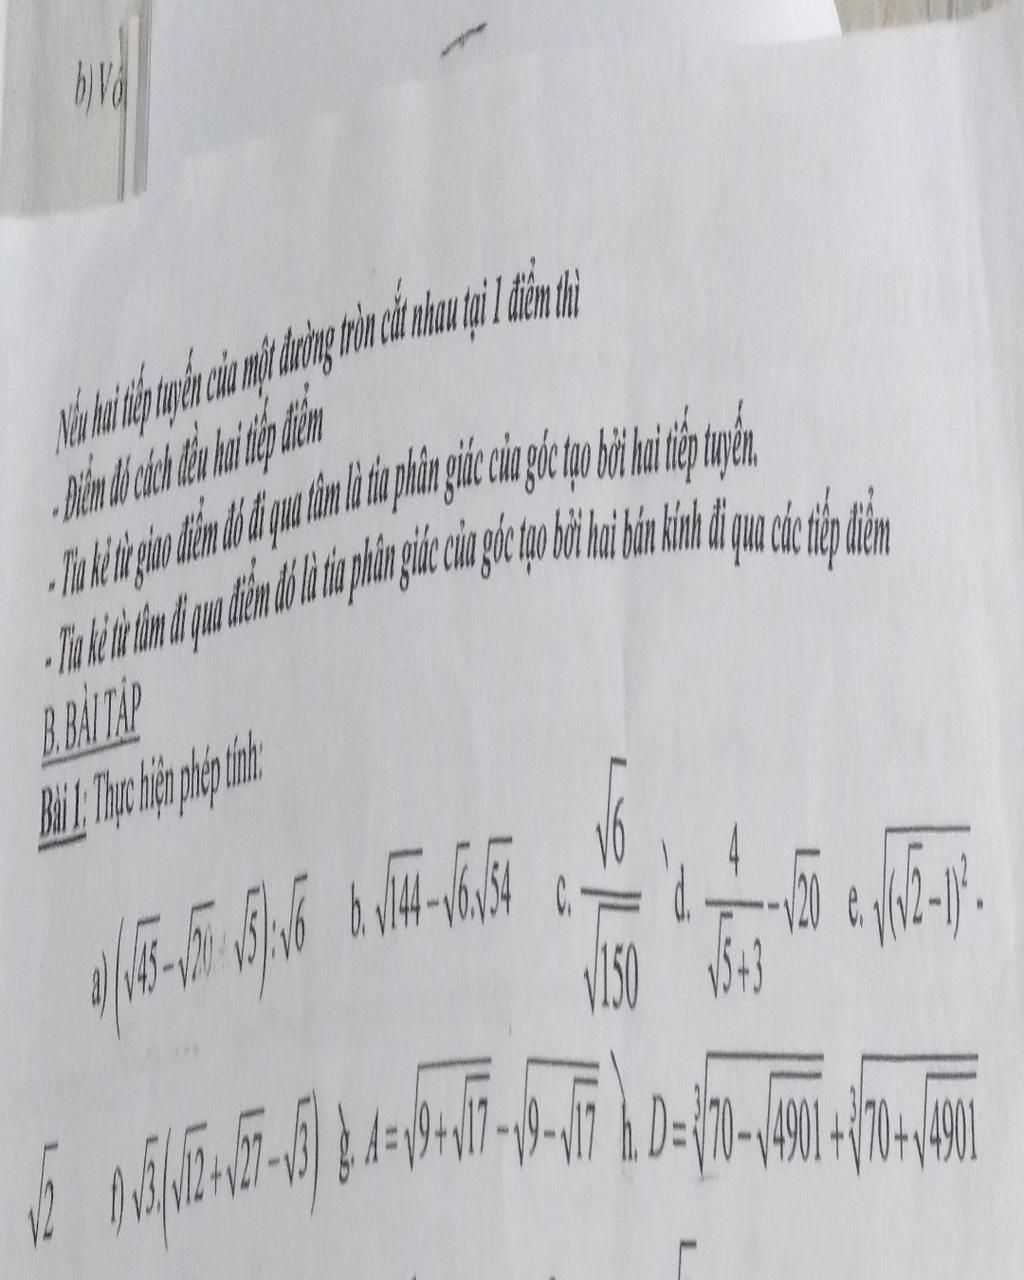 b) Vẽ
Nếu hai tiếp tuyến của một đường tròn cắt nhau tại 1 điểm thì
- Điểm đó cách đều hai tiếp điểm
- Tia kẻ từ giao điểm đó đi qua tâm là tia phân giác của góc tạo bởi hai tiếp tuyến.
- Tia kẻ từ tâm đi qua điểm đó là tia phân giác của góc tạo bởi hai bán kính đi qua các tiếp điểm
B. BÀI TẬP
Bài 1: Thực hiện phép tính:
a) (√45 - √20 √5) : √6 b. √144 - √6.√54 c. √6/√150 d. 4/(√5+3) - √20 e. √((√2-1)²) -
√2 f) √3.(√12 + √27 - √3) g. A = √(9+√17) - √(9-√17) h. D = ³√(70-√4901) + ³√(70+√4901)